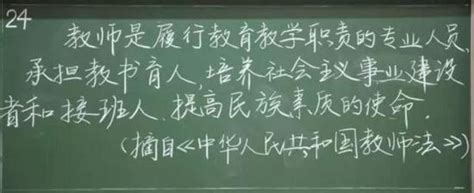 24
教师是履行教育教学职责的专业人员
承担教书育人,培养社会主义事业建设
者和接班人、提高民族素质的使命.
(摘自《中华人民共和国教师法》)